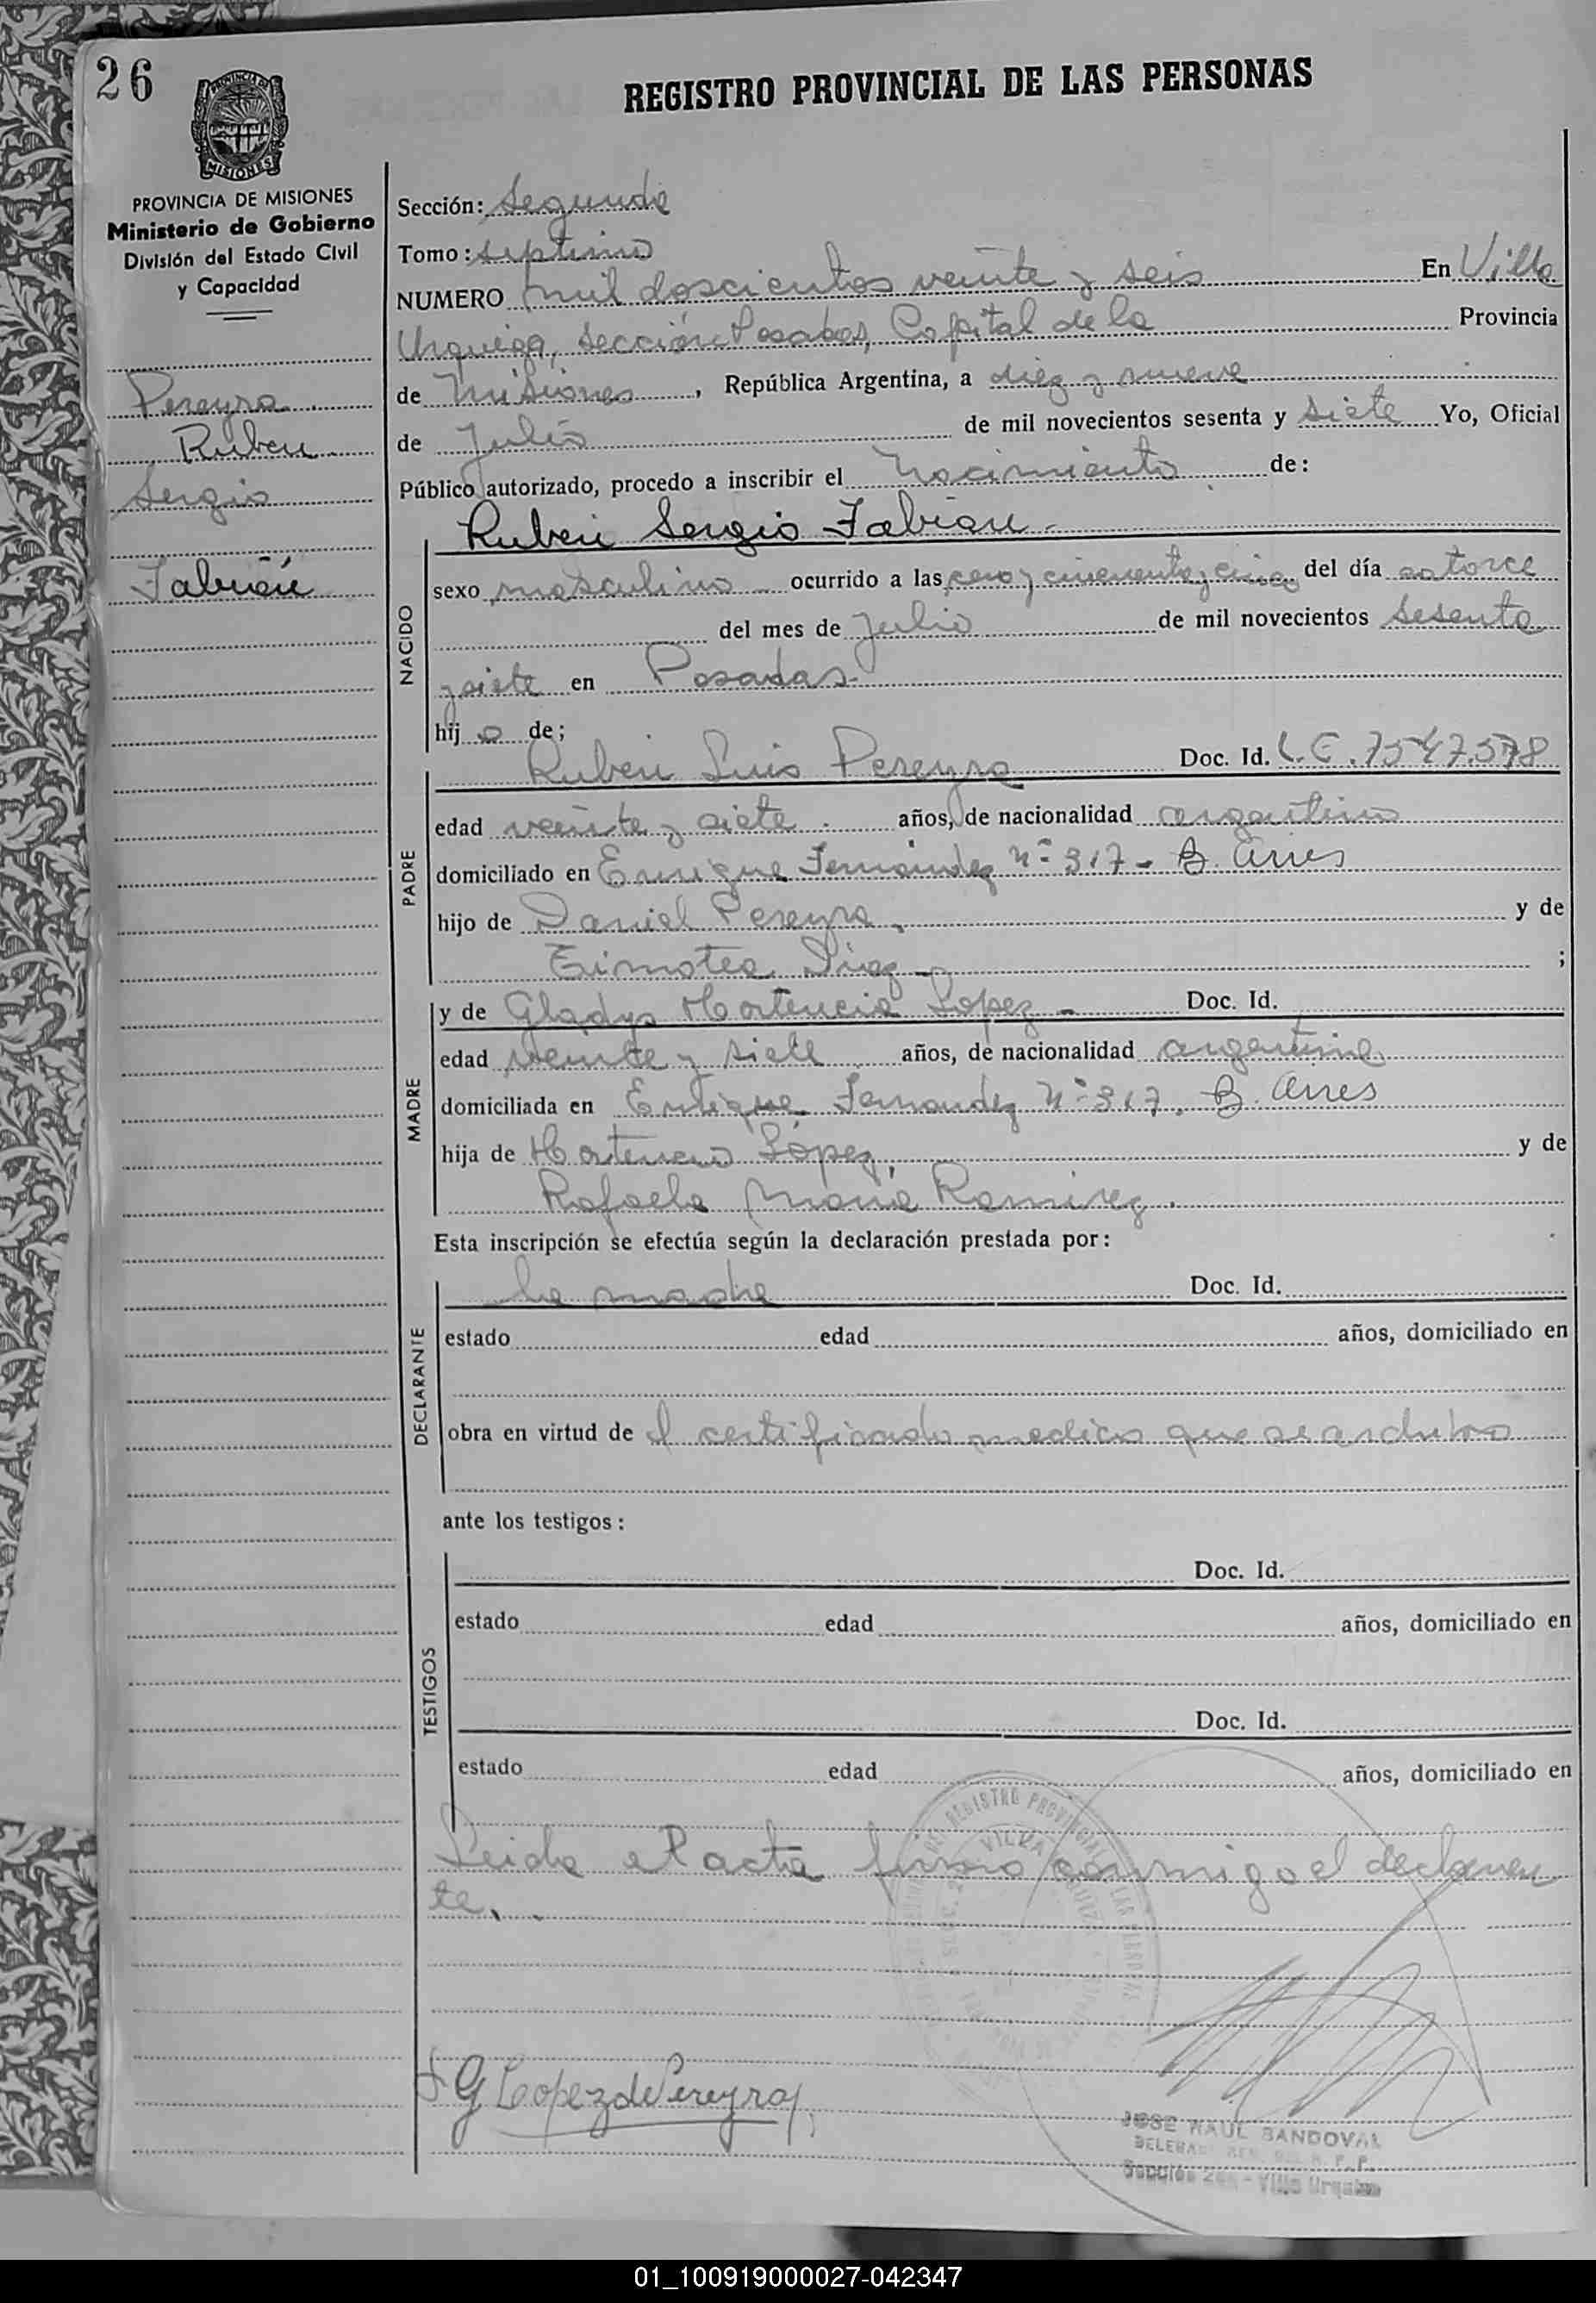 26
REGISTRO PROVINCIAL DE LAS PERSONAS
PROVINCIA DE
MISIONES
PROVINCIA DE MISIONES
Ministerio de Gobierno
División del Estado Civil
y Capacidad
Pereyra
Ruben
Sergio
Fabián
Sección: Segunda
Tomo: septimo
NUMERO mil doscientos veinte y seis En Villa
Urquiza, sección Posadas, Capital de la Provincia
de Misiones, República Argentina, a diez y nueve
de Julio de mil novecientos sesenta y siete Yo, Oficial
Público autorizado, procedo a inscribir el Nacimiento de:
NACIDO
Ruben Sergio Fabian.
sexo masculino ocurrido a las cero y cincuenta y cinco del día catorce
del mes de Julio de mil novecientos sesenta
y siete en Posadas
hijo de;
PADRE
Ruben Luis Pereyra Doc. Id. L.E. 7547.578
edad veinte y siete años, de nacionalidad argentino
domiciliado en Enrique Fernandez Nº 317 - B. Aires
hijo de Daniel Pereyra, y de
Timotea Diaz ;
MADRE
y de Gladys Hortencia Lopez - Doc. Id.
edad veinte y siete años, de nacionalidad argentina
domiciliada en Enrique Fernandez Nº 317, B. Aires
hija de Hortencio López, y de
Rafaela María Ramirez.
Esta inscripción se efectúa según la declaración prestada por:
DECLARANTE
la madre Doc. Id.
estado edad años, domiciliado en
obra en virtud de el certificado medico que se archiva
ante los testigos:
TESTIGOS
Doc. Id.
estado edad años, domiciliado en
Doc. Id.
estado edad años, domiciliado en
Leida el acta firma conmigo el declaran
te.
G Lopez de Pereyra
JOSE RAUL SANDOVAL
Sección 2da - Villa Urquiza
01_100919000027-042347